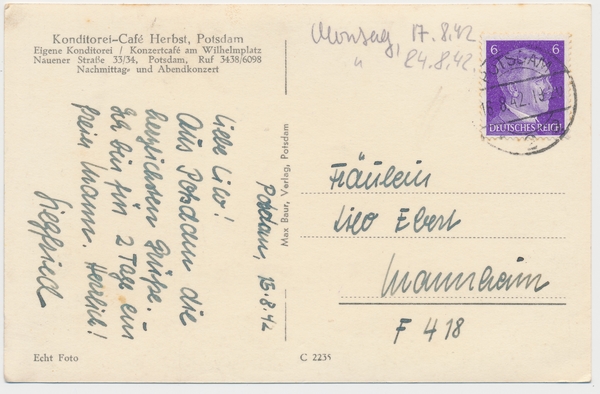 Konditorei-Café Herbst, Potsdam
Eigene Konditorei / Konzertcafé am Wilhelmplatz
Nauener Straße 33/34, Potsdam, Ruf 3438/6098
Nachmittag- und Abendkonzert
Montag, 17.8.42
u 24.8.42.
6 6
DEUTSCHES REICH
POTSDAM
Potsdam, 15.8.42
Liebe Lilo!
Aus Potsdam die
herzlichsten Grüße. -
Ich bin für 2 Tage ein
freier Mann. Herrlich!
Siegfried
Max Baur, Verlag, Potsdam
Fräulein
Lilo Ebert
Mannheim
F 4 18
Echt Foto
C 2235